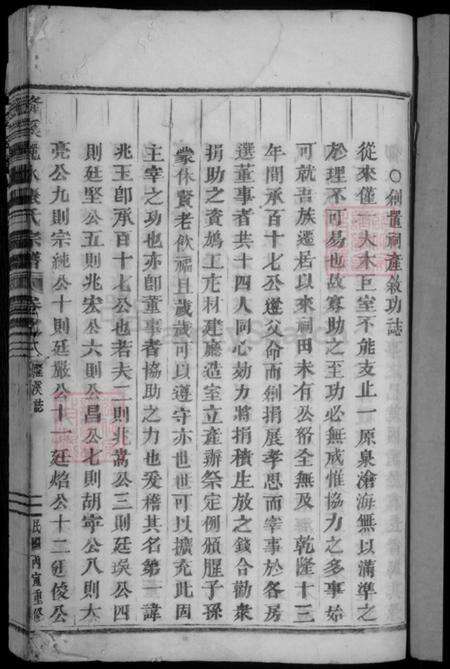 ○創置祠產敘功誌
從來僅一大木巨室不能支止一原泉滄海無以溝準之
於理不可易也故寡助之至功必無成惟協力之多事始
可就吾族遷居以來祠田未有公帑全無及 乾隆十三
年間承百十七公遵父命而創捐展孝思而宰事於各房
選董事者共十四人同心劫力將捐積生放之錢合勸衆
捐助之資鳩工庀材建廳造室立產辦祭定例頒胙子孫
蒙休賢老飲福且歲歲可以遵守亦世世可以擴充此固
主宰之功也亦卽董事者協助之力也爰稽其名第一諱
兆玉卽承百十七公也若夫二則兆嵩公三則廷璵公四
則廷堅公五則兆宏公六則公昌公七則胡寧公八則大
亮公九則宗純公十則廷嚴公十一廷焰公十二廷俊公
氏宗譜 卷 族誌
民國丙寅重修